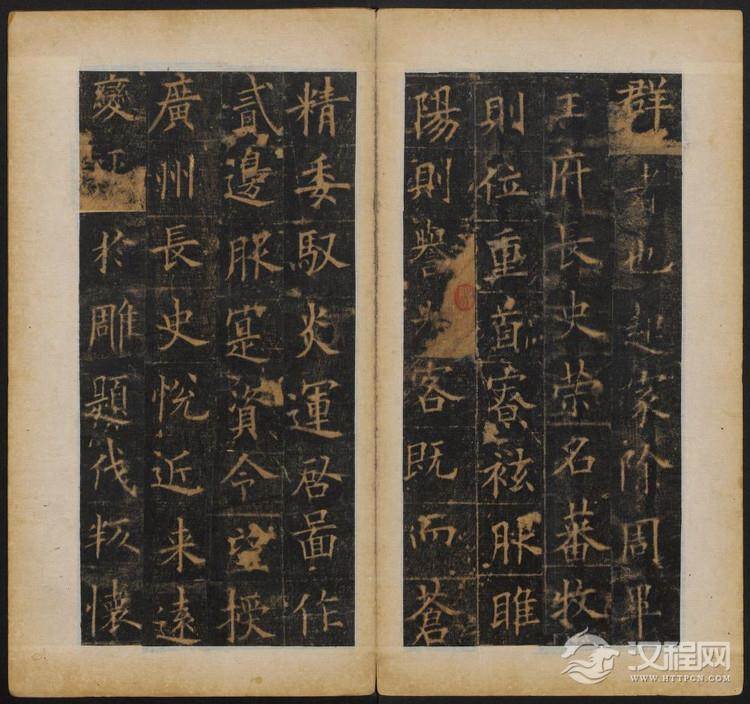 群者也起家除周畢
王府長史榮名蕃牧
則位重首寮袨服睢
陽則譽光客既而蒼
精委馭炎運啓圖作
貳邊服寔資令望授
廣州長史悅近来遠
變於雕題伐叛懷
汉程网
WWW.HTTPCN.COM